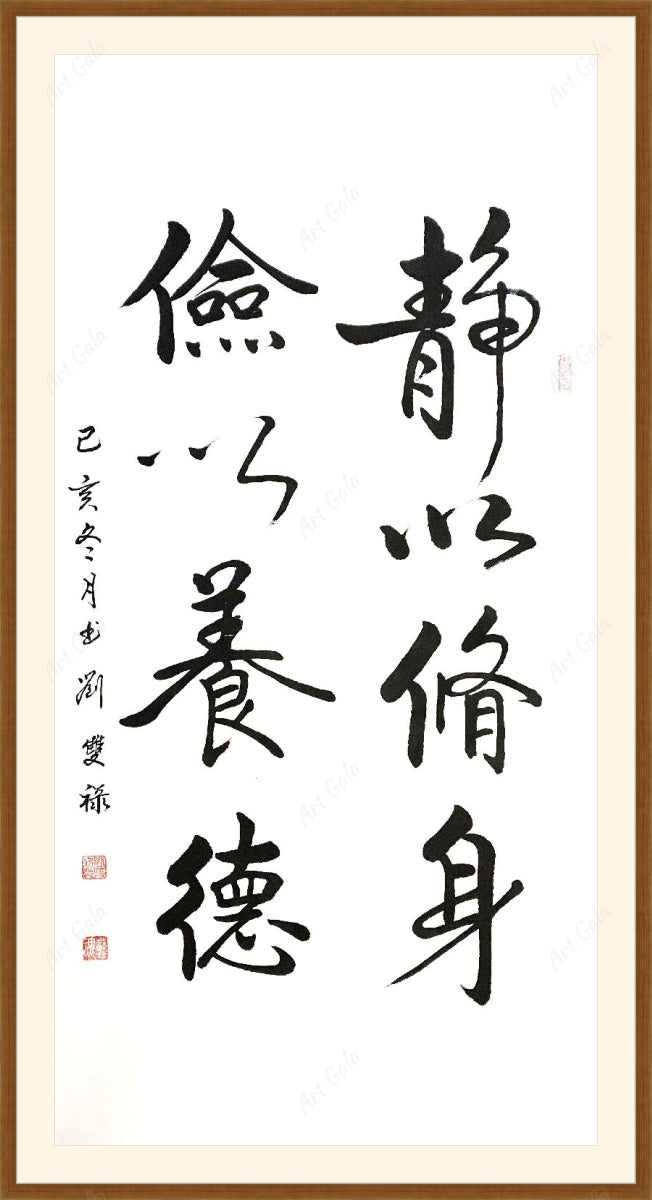 靜以脩身
儉以養德
己亥冬月書 劉雙祿
Art Gala